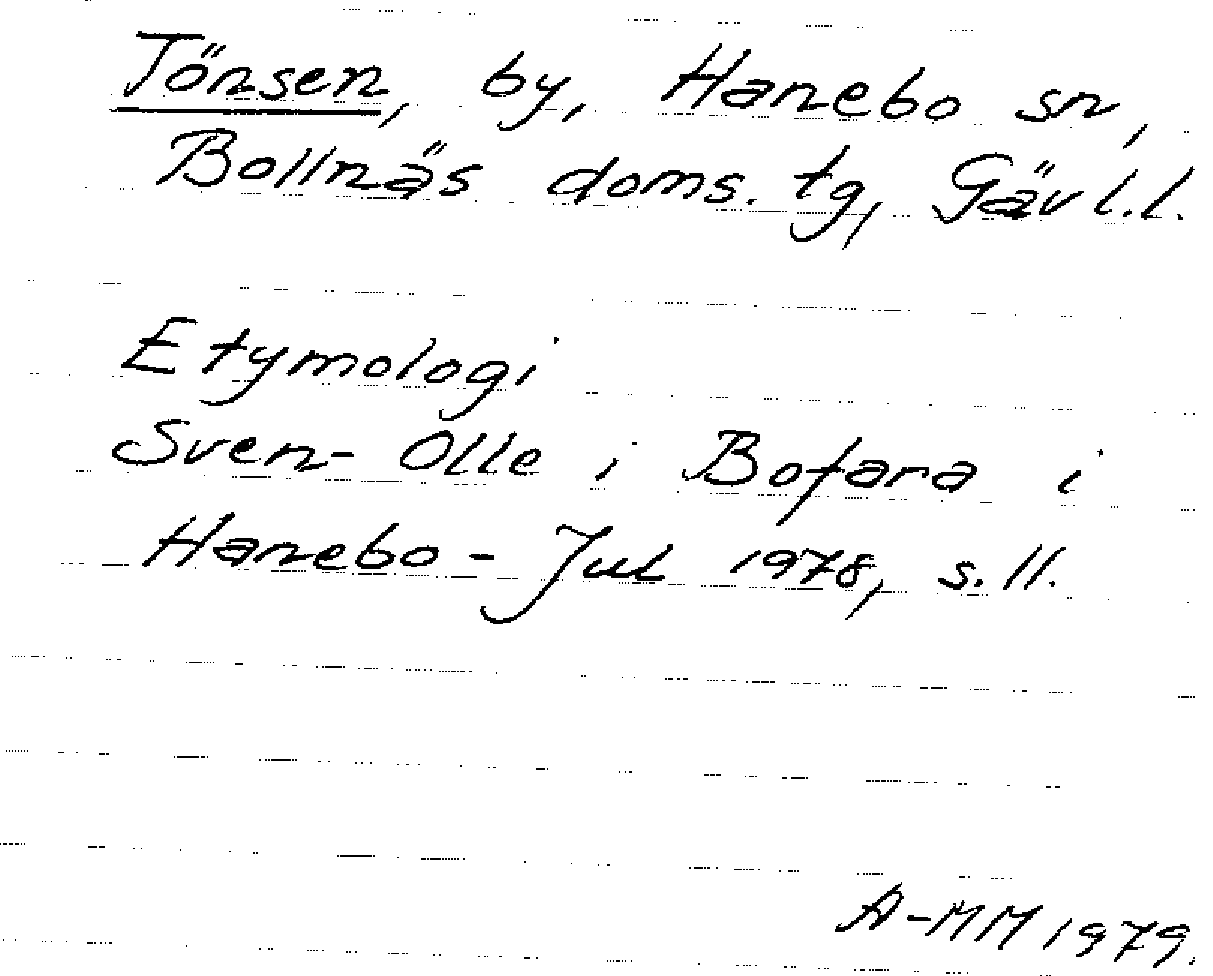 Tönsen, by, Hanebo sn,
Bollnäs doms. tg, Gävl.l.
Etymologi
Sven-Olle i Bofara i
Hanebo - Jul 1978, s. 11.
A-MM 1979.